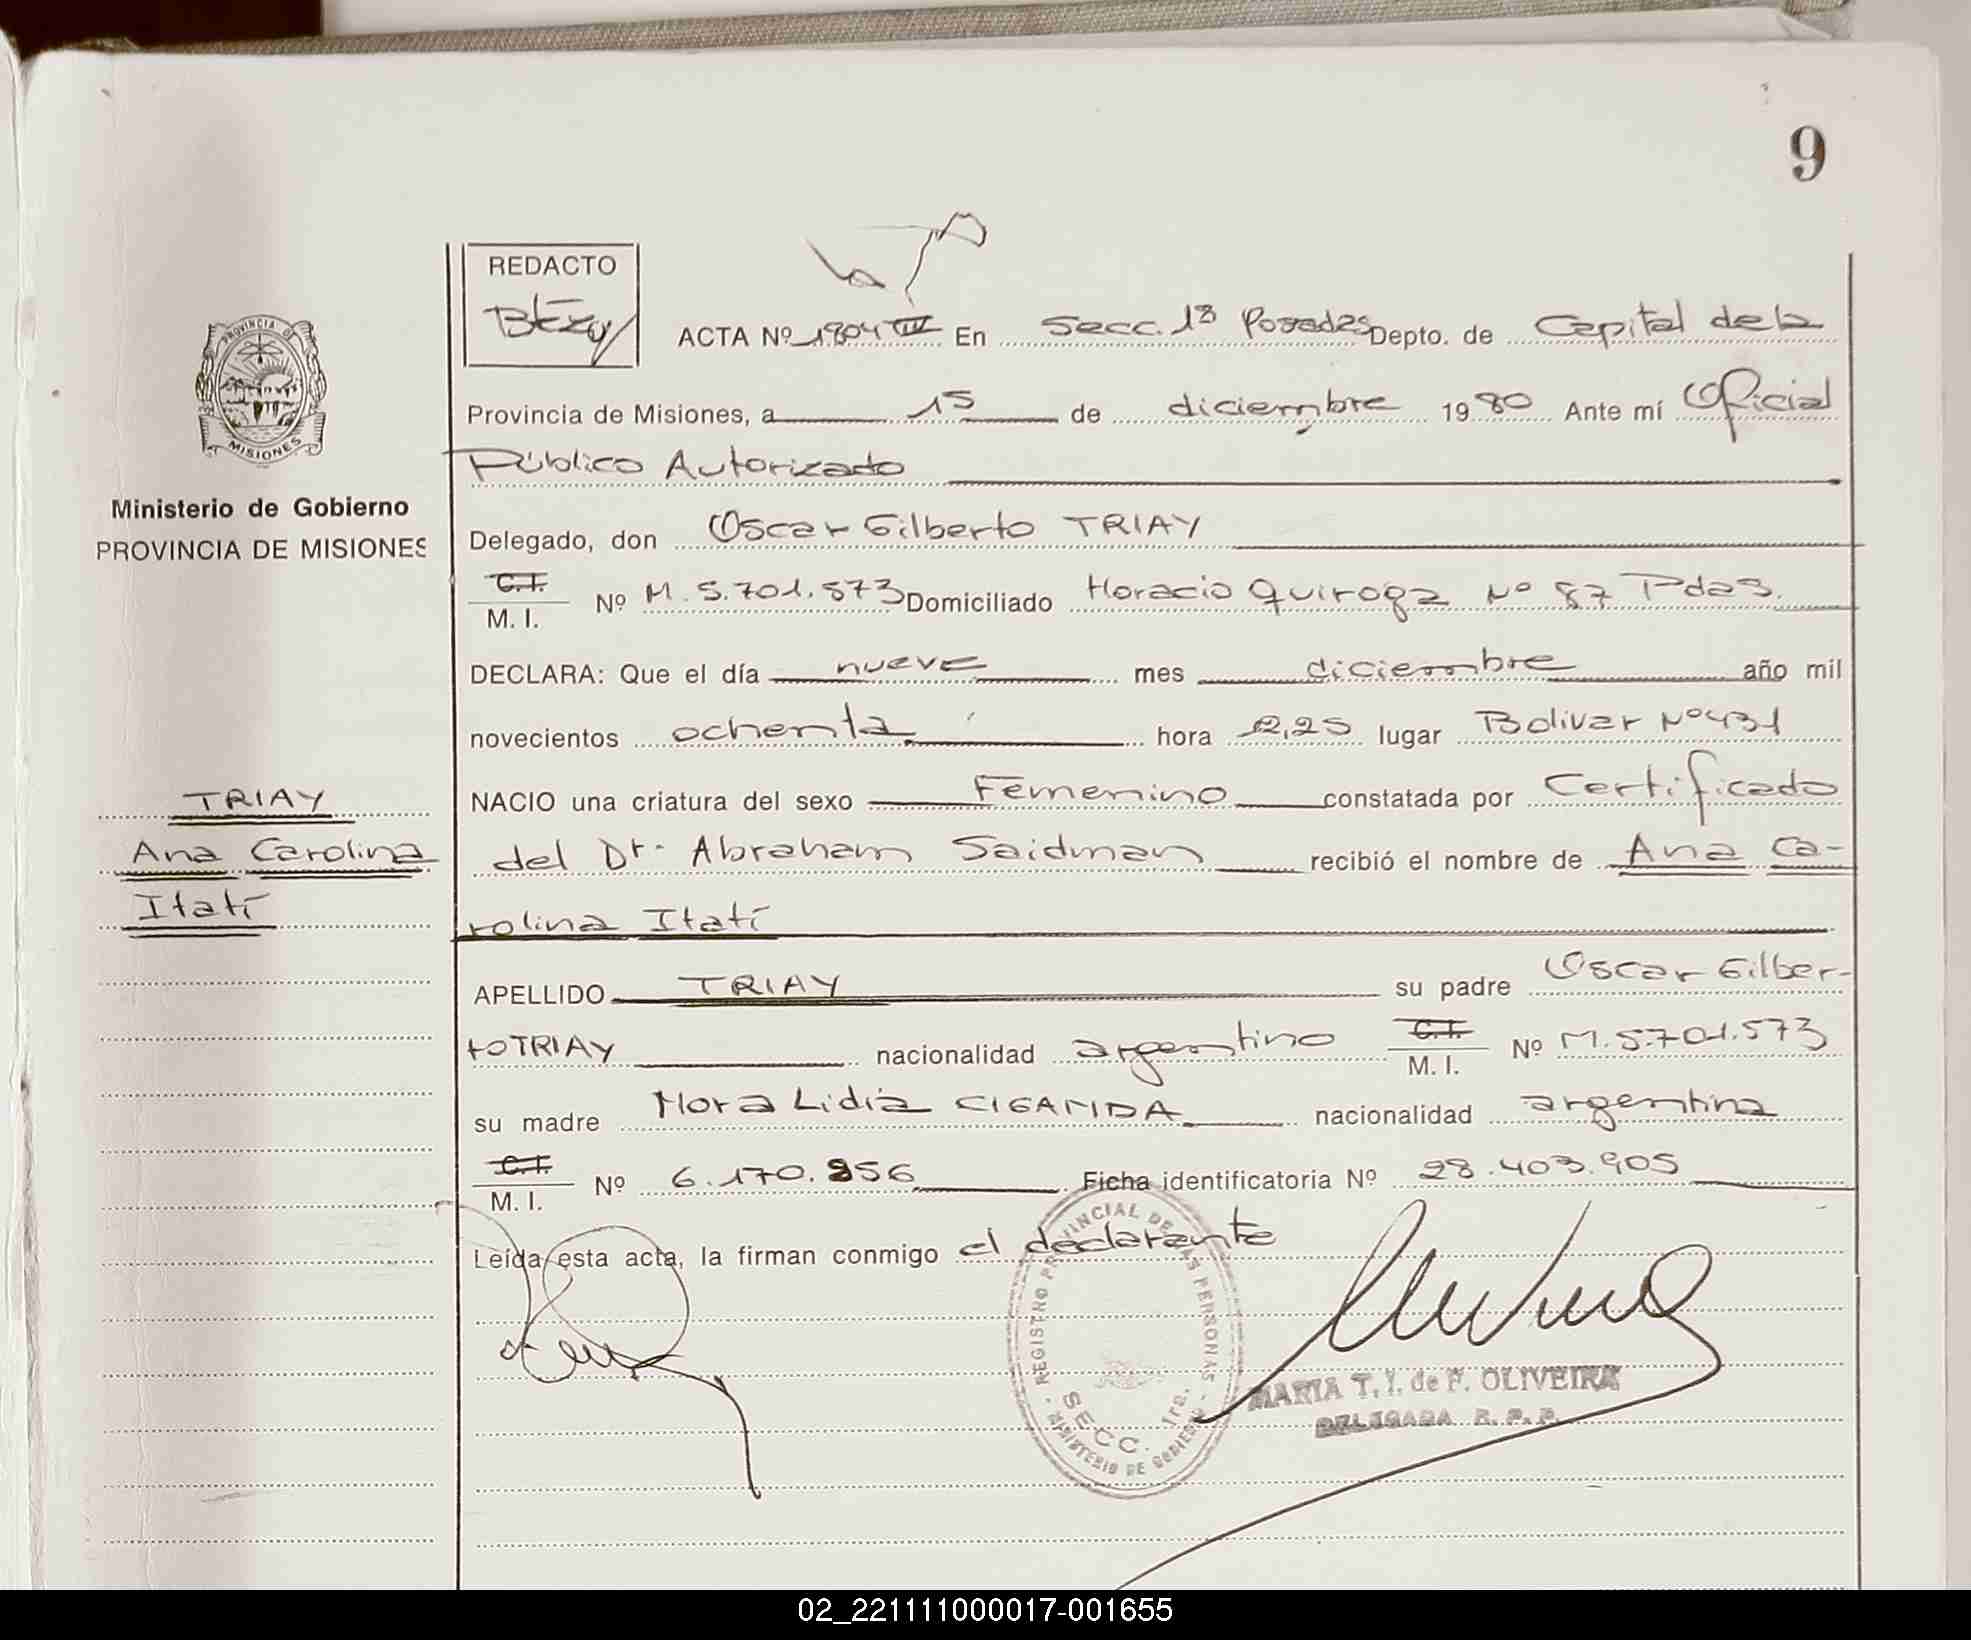 9
REDACTO
ACTA Nº 1.804 III En Secc. 1ª Posadas Depto. de Capital de la
Provincia de Misiones, a 15 de diciembre 1980 Ante mí Oficial
Público Autorizado
Delegado, don Oscar Gilberto TRIAY
C.I.
M. I. Nº M. 5.701.573 Domiciliado Horacio Quiroga Nº 87 Pdas.
DECLARA: Que el día nueve mes diciembre año mil
novecientos ochenta hora 2,25 lugar Bolivar Nº 431
NACIO una criatura del sexo Femenino constatada por Certificado
del Dr. Abraham Saidman recibió el nombre de Ana Ca-
rolina Itatí
APELLIDO TRIAY su padre Oscar Gilber-
to TRIAY nacionalidad argentino C.I. M. I. Nº M. 5.701.573
su madre Nora Lidia CIGANDA nacionalidad argentina
C.I.
M. I. Nº 6.170.856 Ficha identificatoria Nº 28.403.905
Leída esta acta, la firman conmigo el declarante
PROVINCIA DE
MISIONES
Ministerio de Gobierno
PROVINCIA DE MISIONES
TRIAY
Ana Carolina
Itatí
REGISTRO PROVINCIAL DE LAS PERSONAS
SECC. 1ra.
MINISTERIO DE GOBIERNO
MARIA T. I. de F. OLIVEIRA
DELEGADA R. P. P.
02_221111000017-001655